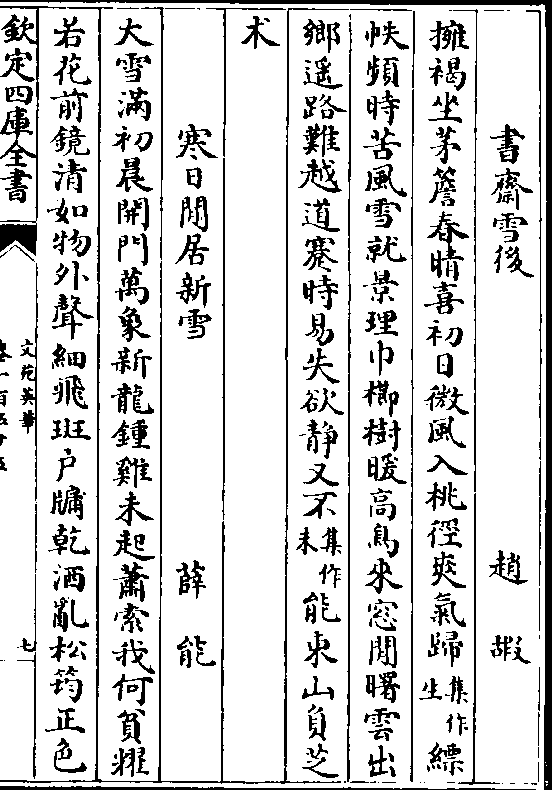 書齋雪後 趙嘏
擁褐坐茅簷春晴喜初日微風入桃徑爽氣歸集作生縹
帙頻時苦風雪就景理巾櫛樹暖高鳥來窓閒曙雲出
鄉遥路難越道蹇時易失欲静又不集作未能東山負芝
术
寒日閒居新雪 薛能
大雪滿初晨開門萬象新龍鍾雞未起蕭索我何貧耀
若花前鏡清如物外聲細飛斑户牖乾洒亂松筠正色
欽定四庫全書
文苑英華
卷一百五十五
七